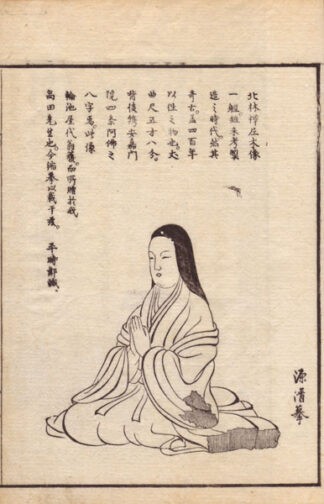 北林禅庄木像
一軀雖未考製
造之時代然其
奇古盖四百年
以往之物也丈
曲尺五寸八分
背後 安嘉門
院四条阿佛之
八字焉此像
輪池屋代翁獲而所贈於我
高田先生也。今縮摹以載于茲。 平時鄰識、
源清摹